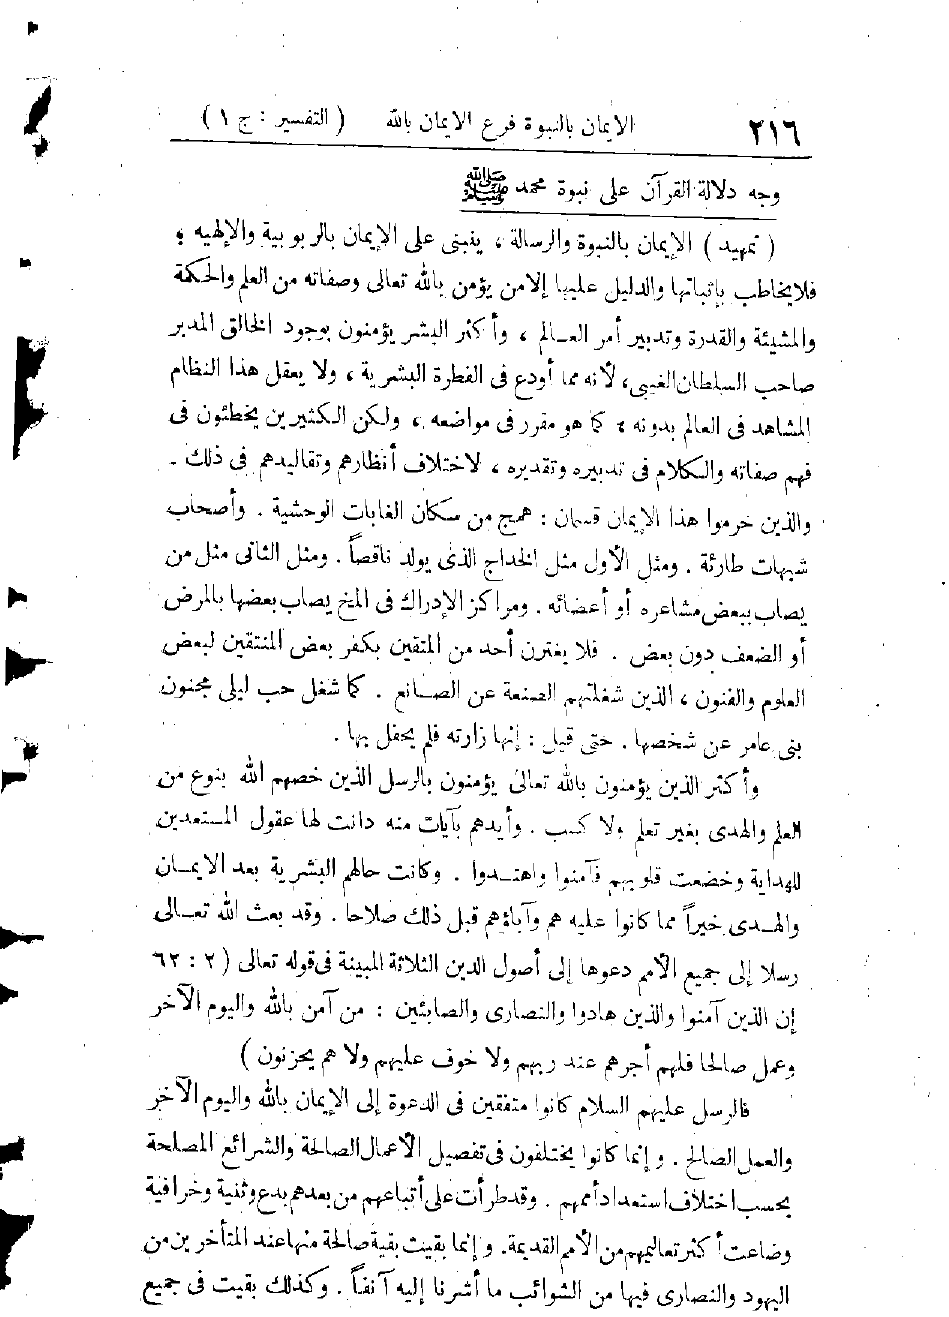 ٢١٦ الايمان بالنبوة فرع الايمان بالله ( التفسير : ج ١ )
وجه دلالة القرآن على نبوة محمد ﷺ
( تمهيد ) الإيمان بالنبوة والرسالة ، ينبنى على الإيمان بالربوبية والإلهيه ؛
فلا يخاطب بإثباتها والدليل عليها إلا من يؤمن بالله تعالى وصفاته من العلم والحكمة
والمشيئة والقدرة وتدبير أمر العـالم ، وأكثر البشر يؤمنون بوجود الخالق المدبر
صاحب السلطان الغيبى، لأنه مما أودع فى الفطرة البشرية ، ولا يعقل هذا النظام
المشاهد فى العالم بدونه ، كما هو مقرر فى مواضعه ، ولكن الكثيرين يخطئون فى
فهم صفاته والكلام فى تدبيره وتقديره ، لاختلاف أنظارهم وتقاليدهم فى ذلك .
والذين حرموا هذا الإيمان قسمان : همج من سكان الغابات الوحشية . وأصحاب
شبهات طارئة . ومثل الأول مثل الخداج الذى يولد ناقصاً . ومثل الثانى مثل من
يصاب ببعض مشاعره أو أعضائه . ومراكز الإدراك فى المخ يصاب بعضها بالمرض
أو الضعف دون بعض . فلا يغترن أحد من المتقين بكفر بعض المتقنين لبعض
العلوم والفنون ، الذين شغلتهم الصنعة عن الصـانع . كما شغل حب ليلى مجنون
بنى عامر عن شخصها . حتى قيل : إنها زارته فلم يحفل بها .
وأكثر الذين يؤمنون بالله تعالى يؤمنون بالرسل الذين خصهم الله بنوع من
العلم والهدى بغير تعلم ولا كسب . وأيدهم بآيات منه دانت لها عقول المستعدين
للهداية وخضعت قلوبهم فآمنوا واهتـدوا . وكانت حالهم البشرية بعد الايمـان
والهـدى خيراً مما كانوا عليه هم وآباؤهم قبل ذلك صلاحا . وقد بعث الله تعـالى
رسلا إلى جميع الأمم دعوها إلى أصول الدين الثلاثة المبينة فى قوله تعالى ( ٢ : ٦٢
إن الذين آمنوا والذين هادوا والنصارى والصابئين : من آمن بالله واليوم الآخر
وعمل صالحا فلهم أجرهم عند ربهم ولا خوف عليهم ولا هم يحزنون )
فالرسل عليهم السلام كانوا متفقين فى الدعوة إلى الإيمان بالله واليوم الآخر
والعمل الصالح . وإنما كانوا يختلفون فى تفصيل الأعمال الصالحة والشرائع المصلحة
بحسب اختلاف استعداد أممهم . وقد طرأت على أتباعهم من بعدهم بدع وثنية وخرافية
وضاعت أكثر تعاليمهم من الأمم القديمة. وإنما بقيت بقية صالحة منها عند المتأخرين من
اليهود والنصارى فيها من الشوائب ما أشرنا إليه آنفاً . وكذلك بقيت فى جميع